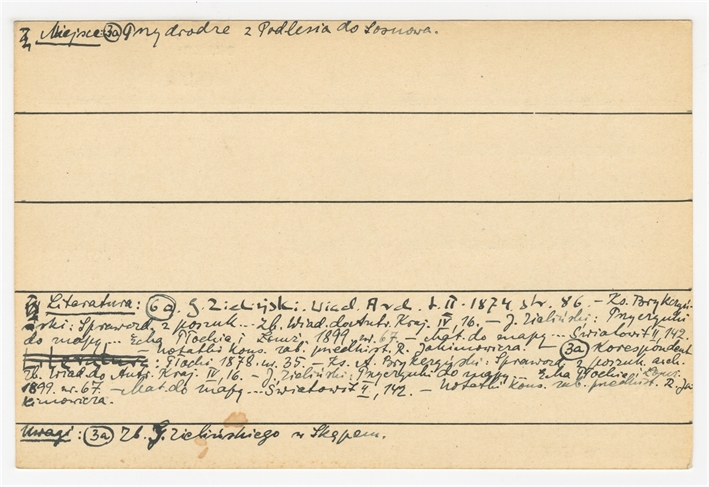 Miejsce: 3a) Przy drodze z Podlesia do Sosnowa.
Literatura: 6a. G. Zieliński. Wiad. Arch. t. II. 1874, str. 86. – Ks. Brykczyń-
ski: Sprawozd. z poszuk... Zb. Wiad. do Antr. Kraj. IV, 16. – J. Zieliński: Przyczynki
do mapy... Echa Płockie i Łomż. 1899 nr. 67 – Mat. do mapy... Światowit II, 142.
– Notatki kons. zab. przedhist. R. Jakimowicza. 3a Korespondent
Płocki 1878. nr. 35. – Ks. A. Brykczyński: Sprawozd. z poszuk. arch.
Zb. Wiad. do Antr. Kraj. IV, 16. – J. Zieliński: Przyczynki do mapy... Echa Płockie i Łomż.
1899. nr. 67. – Mat. do mapy... Światowit II, 142. – Notatki kons. zab. przedhist. R. Ja-
kimowicza.
Uwagi: 3a Zb. G. Zielińskiego w Skępem.